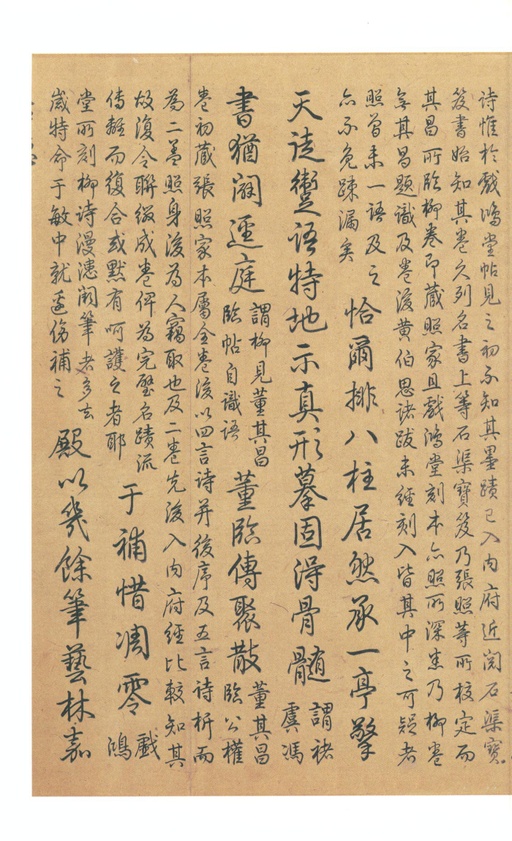 詩惟於戲鴻堂帖見之初不知其墨蹟已入內府近閱石渠寶
笈書始知其卷久列名書上等石渠寶笈乃張照等所校定而
其昌所臨柳卷即藏照家且戲鴻堂刻本亦照所深悉乃柳卷
無其昌題識及卷後黃伯思諸跋未經刻入皆其中之可疑者
照曾未一語及之
亦不免疎漏矣
恰爾排八柱居然承一亭擎
天徒躗語特地示真形摹固得骨髓
謂褚
虞馮
書猶闊逕庭
謂柳見董其昌
臨帖自識語
董臨傳聚散
董其昌
臨公權
卷初藏張照家本屬全卷後以四言詩并後序及五言詩析而
為二蓋照身後為人竊取也及二卷先後入內府經比較知其
故復令聯綴成卷俾為完璧名蹟流
傳離而復合或默有呵護之者耶
于補惜凋零
戲
鴻
堂所刻柳詩漫漶闕筆者多去
歲特命于敏中就邊傍補之
殿以幾餘筆藝林嘉